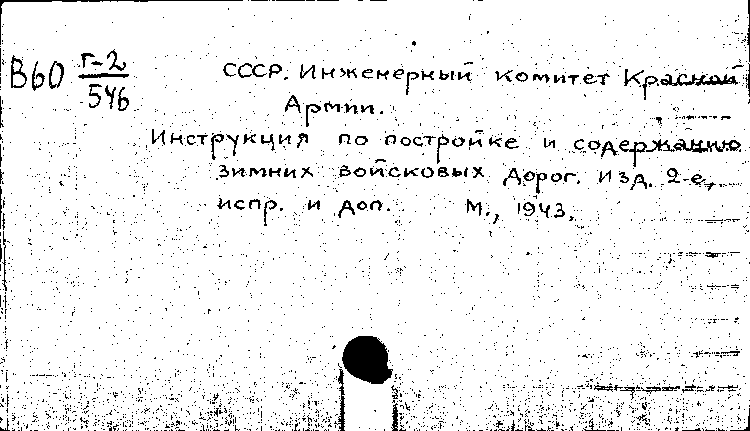 В60 Г-2/546
СССР. Инженерный комитет Красной
Армии.
Инструкция по постройке и содержанию
зимних войсковых дорог. Изд. 2-е,
испр. и доп. М., 1943.